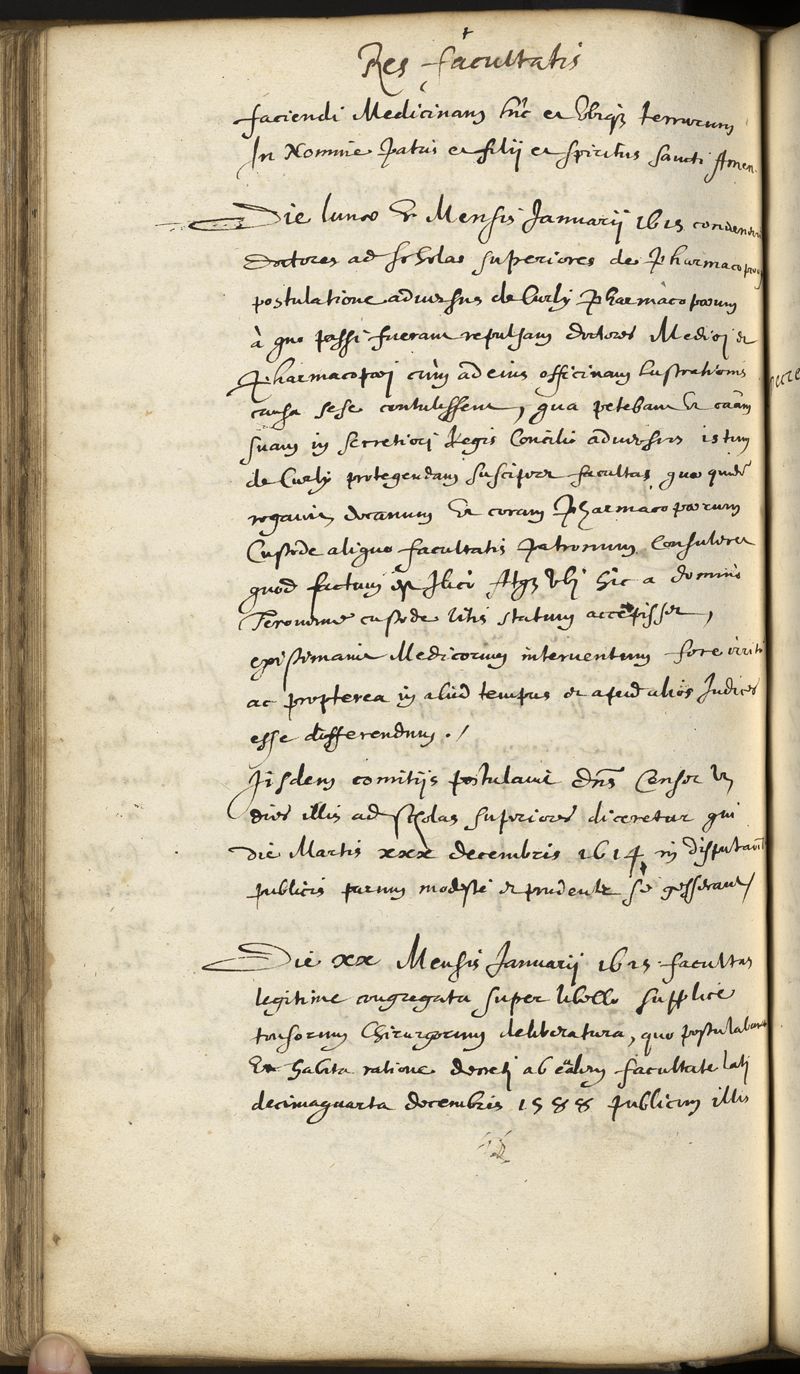 Res facultatis
faciendi Medicinam hic et Vbiq3 terrarum
In Nomine Patris et filij et spiritus sancti Amen.
Die lunæ Mensis Januarij 1615
doctores ad scholas superiores de
postulatione aduersus de Curly Pharmacopœum
à quo passi fuerant repulsam doctores Medici et
Pharmacopœi cùm ad eius officinam lustrationis
causa sese contulissent, qua petebant Vt caām
suam in secretiori Regis Concilio aduersus istum
de Curly protegendam susciperet facultas, quæ quidē
rogauit decanum Vt coram Pharmacopœorum
Custode aliquo facultatis Patronum Consuleret
quod factum est Ilico Atq3 Vbj hic a domino
custode litis statum accepisset,
existimauit Medicorum interuentum fore
ac propterea in aliud tempus et apud alios Judices
esse differendum ./
Jisdem comitijs postulauit dns Censor Vt
dies illis ad scholas superiores diceretur qui
die Martis xxx decembris 1614 in
publicis parum modestè et prudenter se gesserant/
Die xx Mensis Januarij 1615 facultas
legitime congregata super libello supplice
tonsorum Chirurgorum deliberatura, quo
Vt habita ratione decreti ab eādem facultate lati
decimaquarta decembris 1588 publicum illis